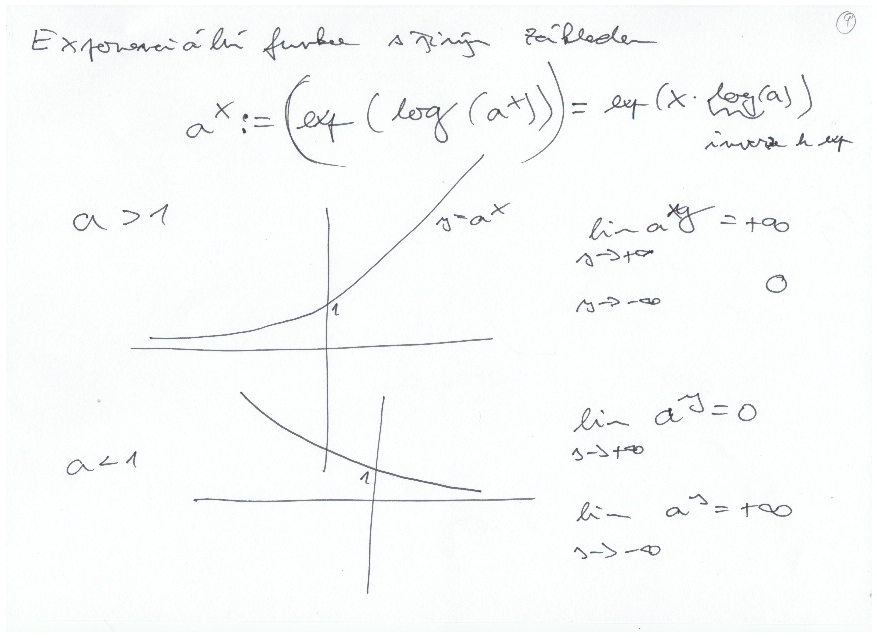 9
Exponenciální funkce s jiným základem
a^x := (exp(log(a^x))) = exp(x · log(a))
inverze k exp
a > 1
y=a^x
1
lim a^y = +∞
y→+∞
y→-∞ 0
a < 1
1
lim a^y = 0
y→+∞
lim a^y = +∞
y→-∞